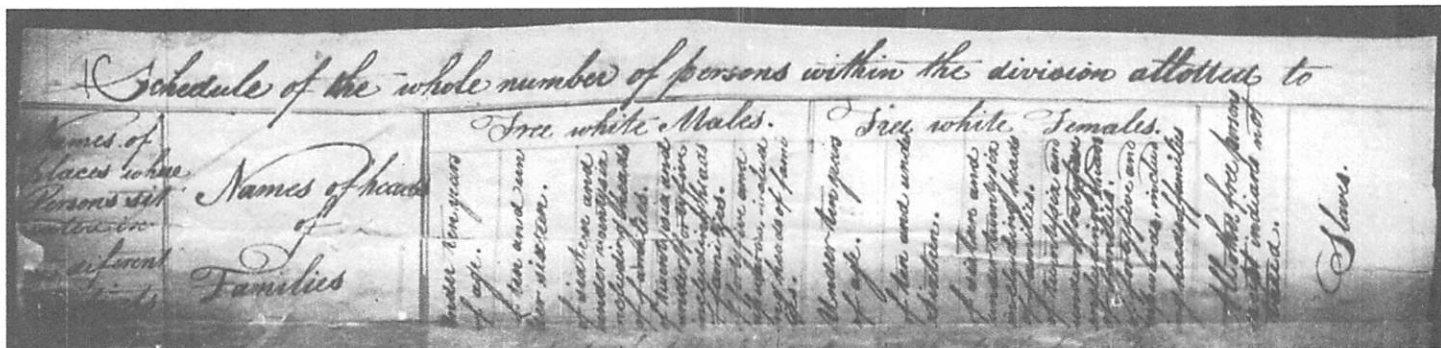 Schedule of the whole number of persons within the division allotted to
Names of
places where
Persons sit
Names of heads
of
Families
Free white Males.
under ten years
of age.
of ten and un
der sixteen.
of sixteen and
under twentysix
including heads
of families.
of twentysix and
under fortyfive
including heads
of families.
of fortyfive and
Free white Females.
Under ten years
of age.
of ten and under
sixteen.
of sixteen and
under twentysix
including heads
of families.
of twentysix and
under fortyfive
including heads
of families.
of fortyfive and
of heads of families
all other free persons
except indians not
taxed.
Slaves.